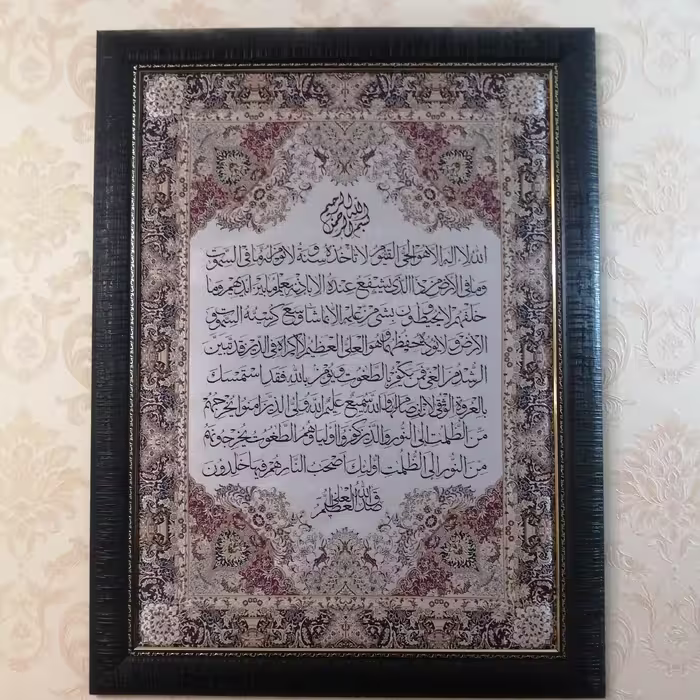 بسم الله الرحمن الرحيم
الله لا اله الا هو الحي القيوم لا تاخذه سنة ولا نوم له ما في السموت
وما في الارض من ذا الذي يشفع عنده الا باذنه يعلم ما بين ايديهم وما
خلفهم ولا يحيطون بشيء من علمه الا بما شاء وسع كرسيه السموت و
الارض ولا يوده حفظهما وهو العلي العظيم لا اكراه في الدين قد تبين
الرشد من الغي فمن يكفر بالطغوت ويؤمن بالله فقد استمسك
بالعروة الوثقى لا انفصام لها والله سميع عليم الله ولي الذين امنوا يخرجهم
من الظلمت الى النور والذين كفروا اولياؤهم الطغوت يخرجونهم
من النور الى الظلمت اولئك اصحب النار هم فيها خلدون
صدق الله العلي العظيم